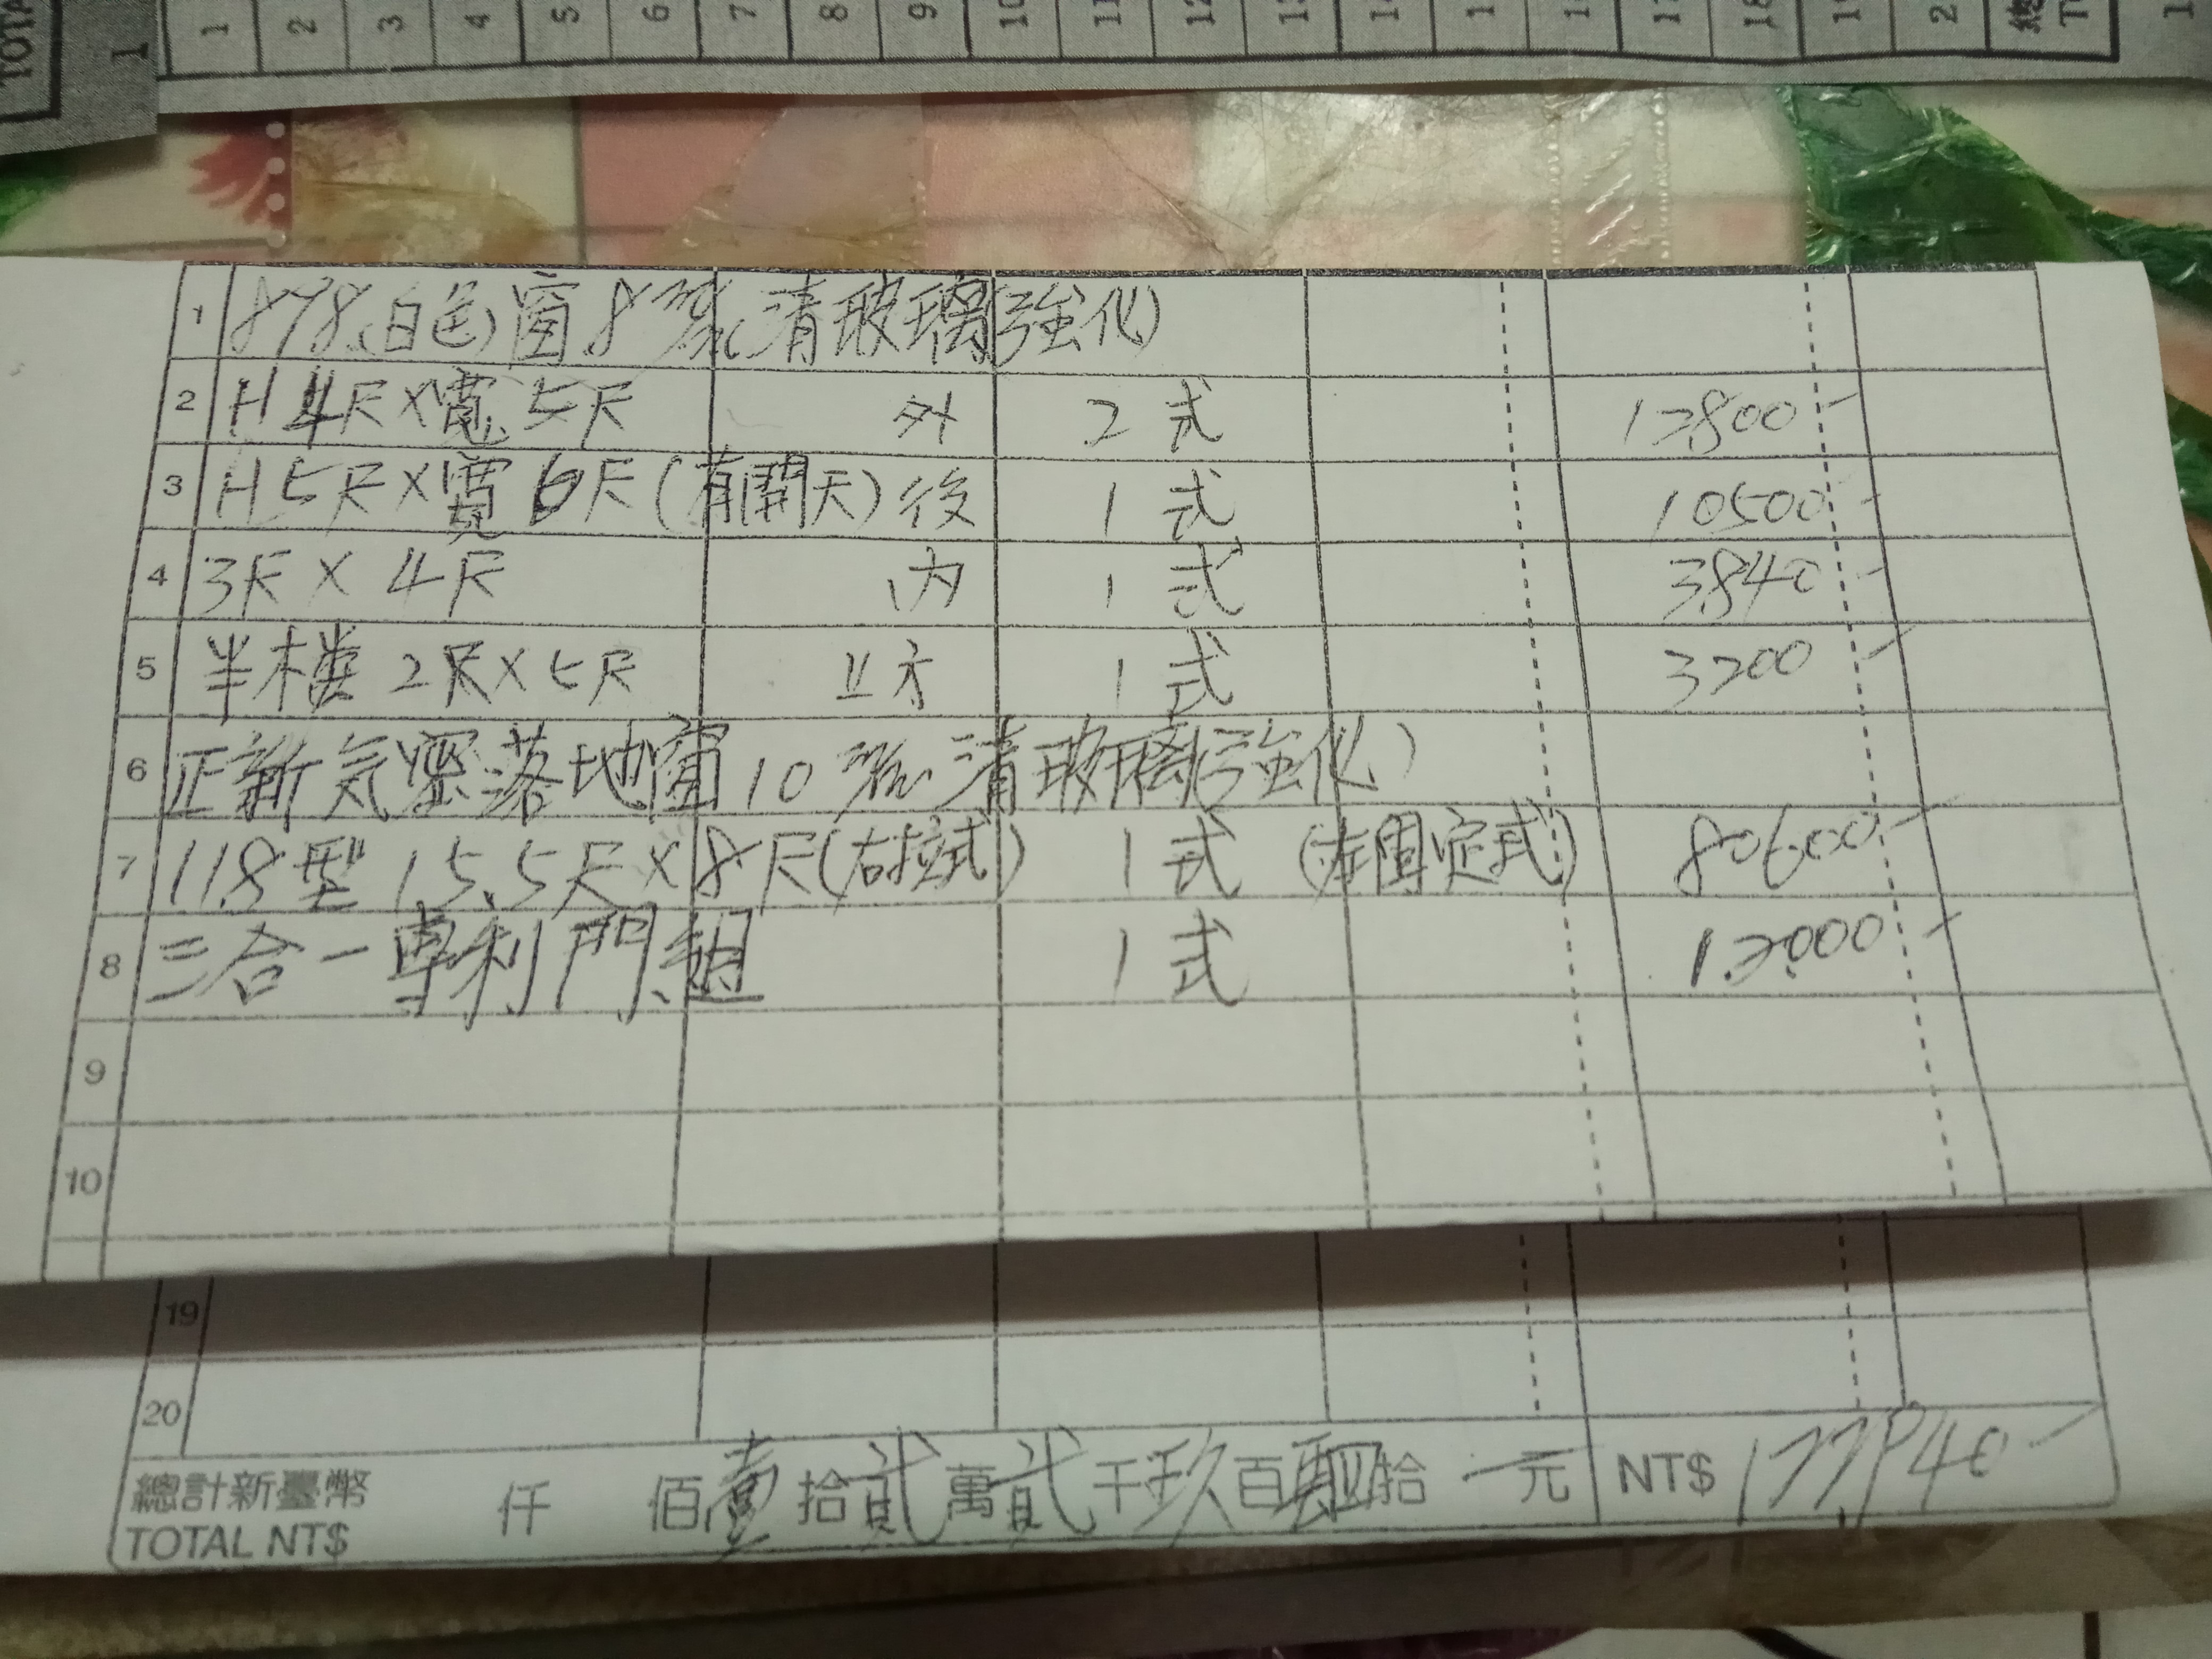 TOTA 1
1 2 3 4 5 6 7 8 9 10 11 12 13 14 1 1 17 18 1 2 總 T 1
1 898(白色)窗 8 清玻璃(強化)
2 H 4尺×寬 5尺 外 2 式 12800-
3 H 5尺×寬 6尺(有開天) 後 1 式 10500-
4 3尺 × 4尺 內 1 式 3840-
5 半樓 2尺×5尺 1 式 3200-
6 正新気密落地窗 10 清玻璃(強化)
7 118型 15.5尺×8尺(右拉式) 1 式 (左固定式) 80600-
8 三合一專利門組 1 式 12000-
9
10
19
20
總計新臺幣 仟 佰壹拾貳萬貳千玖百肆拾 元 NT$ 122,940-
TOTAL NT$